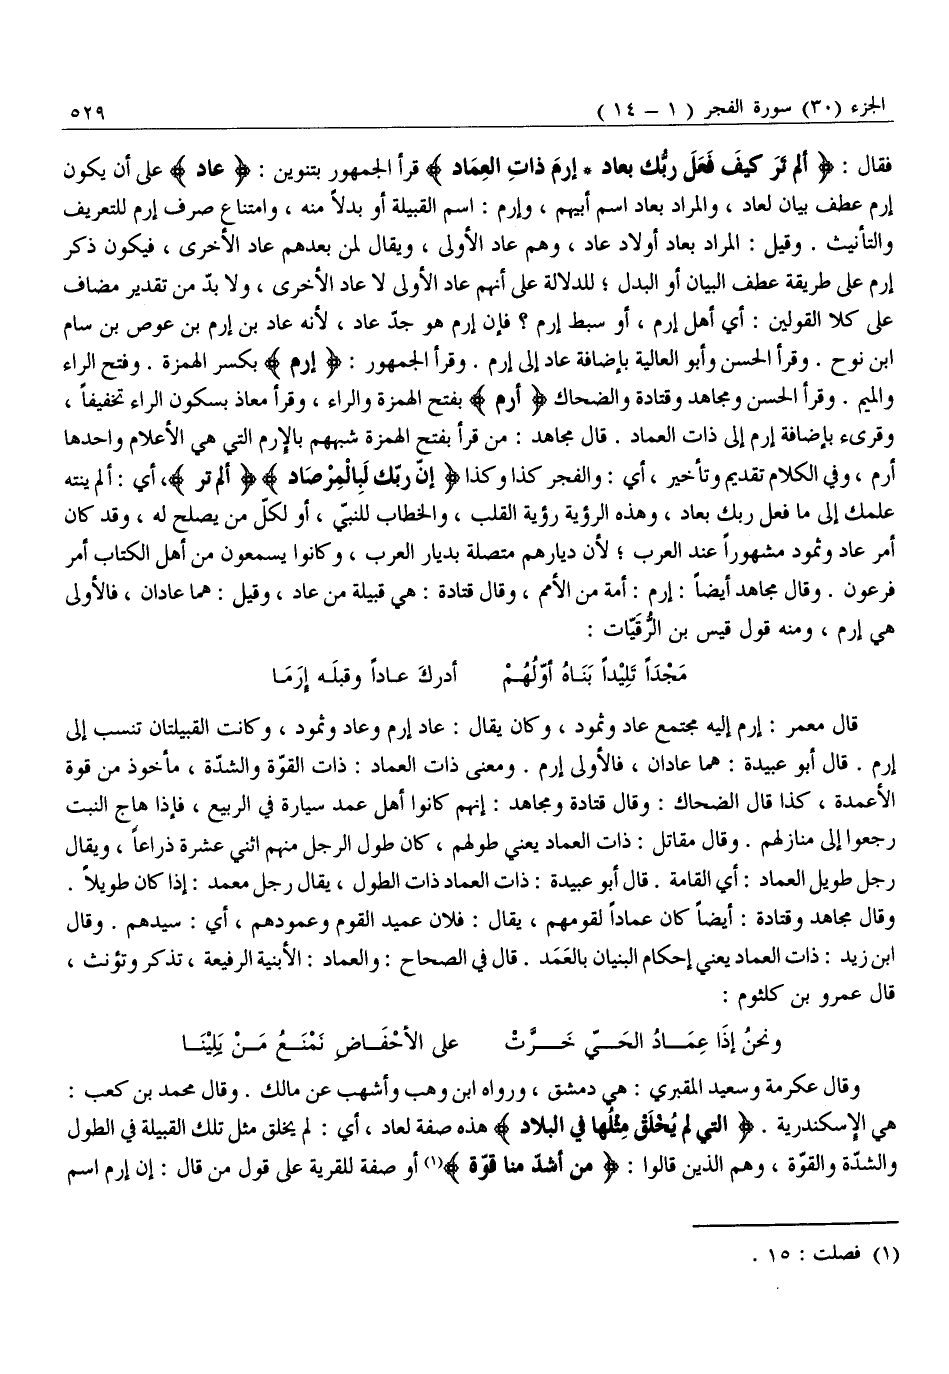 الجزء (٣٠) سورة الفجر ( ١ – ١٤ ) ٥٢٩
فقال : ﴿ ألم تَرَ كيفَ فَعَلَ ربُّك بعاد * إرمَ ذاتِ العِمَاد ﴾ قرأ الجمهور بتنوين : ﴿ عاد ﴾ على أن يكون
إرم عطف بيان لعاد ، والمراد بعاد اسم أبيهم ، وإرم : اسم القبيلة أو بدلاً منه ، وامتناع صرف إرم للتعريف
والتأنيث . وقيل : المراد بعاد أولاد عاد ، وهم عاد الأولى ، ويقال لمن بعدهم عاد الأخرى ، فيكون ذكر
إرم على طريقة عطف البيان أو البدل ؛ للدلالة على أنهم عاد الأولى لا عاد الأخرى ، ولا بدّ من تقدير مضاف
على كلا القولين : أي أهل إرم ، أو سبط إرم ؟ فإن إرم هو جدّ عاد ، لأنه عاد بن إرم بن عوص بن سام
ابن نوح . وقرأ الحسن وأبو العالية بإضافة عاد إلى إرم . وقرأ الجمهور : ﴿ إرم ﴾ بكسر الهمزة . وفتح الراء
والميم . وقرأ الحسن ومجاهد وقتادة والضحاك ﴿ أرم ﴾ بفتح الهمزة والراء ، وقرأ معاذ بسكون الراء تخفيفاً ،
وقرىء بإضافة إرم إلى ذات العماد . قال مجاهد : من قرأ بفتح الهمزة شبههم بالإرم التي هي الأعلام واحدها
أرم ، وفي الكلام تقديم وتأخير ، أي : والفجر كذا وكذا ﴿ إنّ ربّك لَبالْمِرْصاد ﴾ ﴿ ألم تر ﴾، أي : ألم ينته
علمك إلى ما فعل ربك بعاد ، وهذه الرؤية رؤية القلب ، والخطاب للنبيّ ، أو لكلّ من يصلح له ، وقد كان
أمر عاد وثمود مشهوراً عند العرب ؛ لأن ديارهم متصلة بديار العرب ، وكانوا يسمعون من أهل الكتاب أمر
فرعون . وقال مجاهد أيضاً : إرم : أمة من الأمم ، وقال قتادة : هي قبيلة من عاد ، وقيل : هما عادان ، فالأولى
هي إرم ، ومنه قول قيس بن الرُّقَيّات :
مَجْدَاً تَلِيْداً بَنَاهُ أوّلُهُمْ أدركَ عـاداً وقبلَـه إِرَمَـا
قال معمر : إرم إليه مجتمع عاد وثمود ، وكان يقال : عاد إرم وعاد وثمود ، وكانت القبيلتان تنسب إلى
إرم . قال أبو عبيدة : هما عادان ، فالأولى إرم . ومعنى ذات العماد : ذات القوّة والشدّة ، مأخوذ من قوة
الأعمدة ، كذا قال الضحاك : وقال قتادة ومجاهد : إنهم كانوا أهل عمد سيارة في الربيع ، فإذا هاج النبت
رجعوا إلى منازلهم . وقال مقاتل : ذات العماد يعني طولهم ، كان طول الرجل منهم اثني عشرة ذراعاً ، ويقال
رجل طويل العماد : أي القامة . قال أبو عبيدة : ذات العماد ذات الطول ، يقال رجل معمد : إذا كان طويلاً .
وقال مجاهد وقتادة : أيضاً كان عماداً لقومهم ، يقال : فلان عميد القوم وعمودهم ، أي : سيدهم . وقال
ابن زيد : ذات العماد يعني إحكام البنيان بالعَمَد . قال في الصحاح : والعماد : الأبنية الرفيعة ، تذكر وتؤنث ،
قال عمرو بن كلثوم :
ونحنُ إذَا عِمَــادُ الحَـيّ خَــرَّتْ على الأحْفَـاضِ نَمْنَـعُ مَـنْ يَلِيْنَـا
وقال عكرمة وسعيد المقبري : هي دمشق ، ورواه ابن وهب وأشهب عن مالك . وقال محمد بن كعب :
هي الإسكندرية . ﴿ التي لم يُخْلَقْ مِثْلُها في البلاد ﴾ هذه صفة لعاد ، أي : لم يخلق مثل تلك القبيلة في الطول
والشدّة والقوّة ، وهم الذين قالوا : ﴿ من أشدّ منا قوّة ﴾(١) أو صفة للقرية على قول من قال : إن إرم اسم
(١) فصلت : ١٥ .